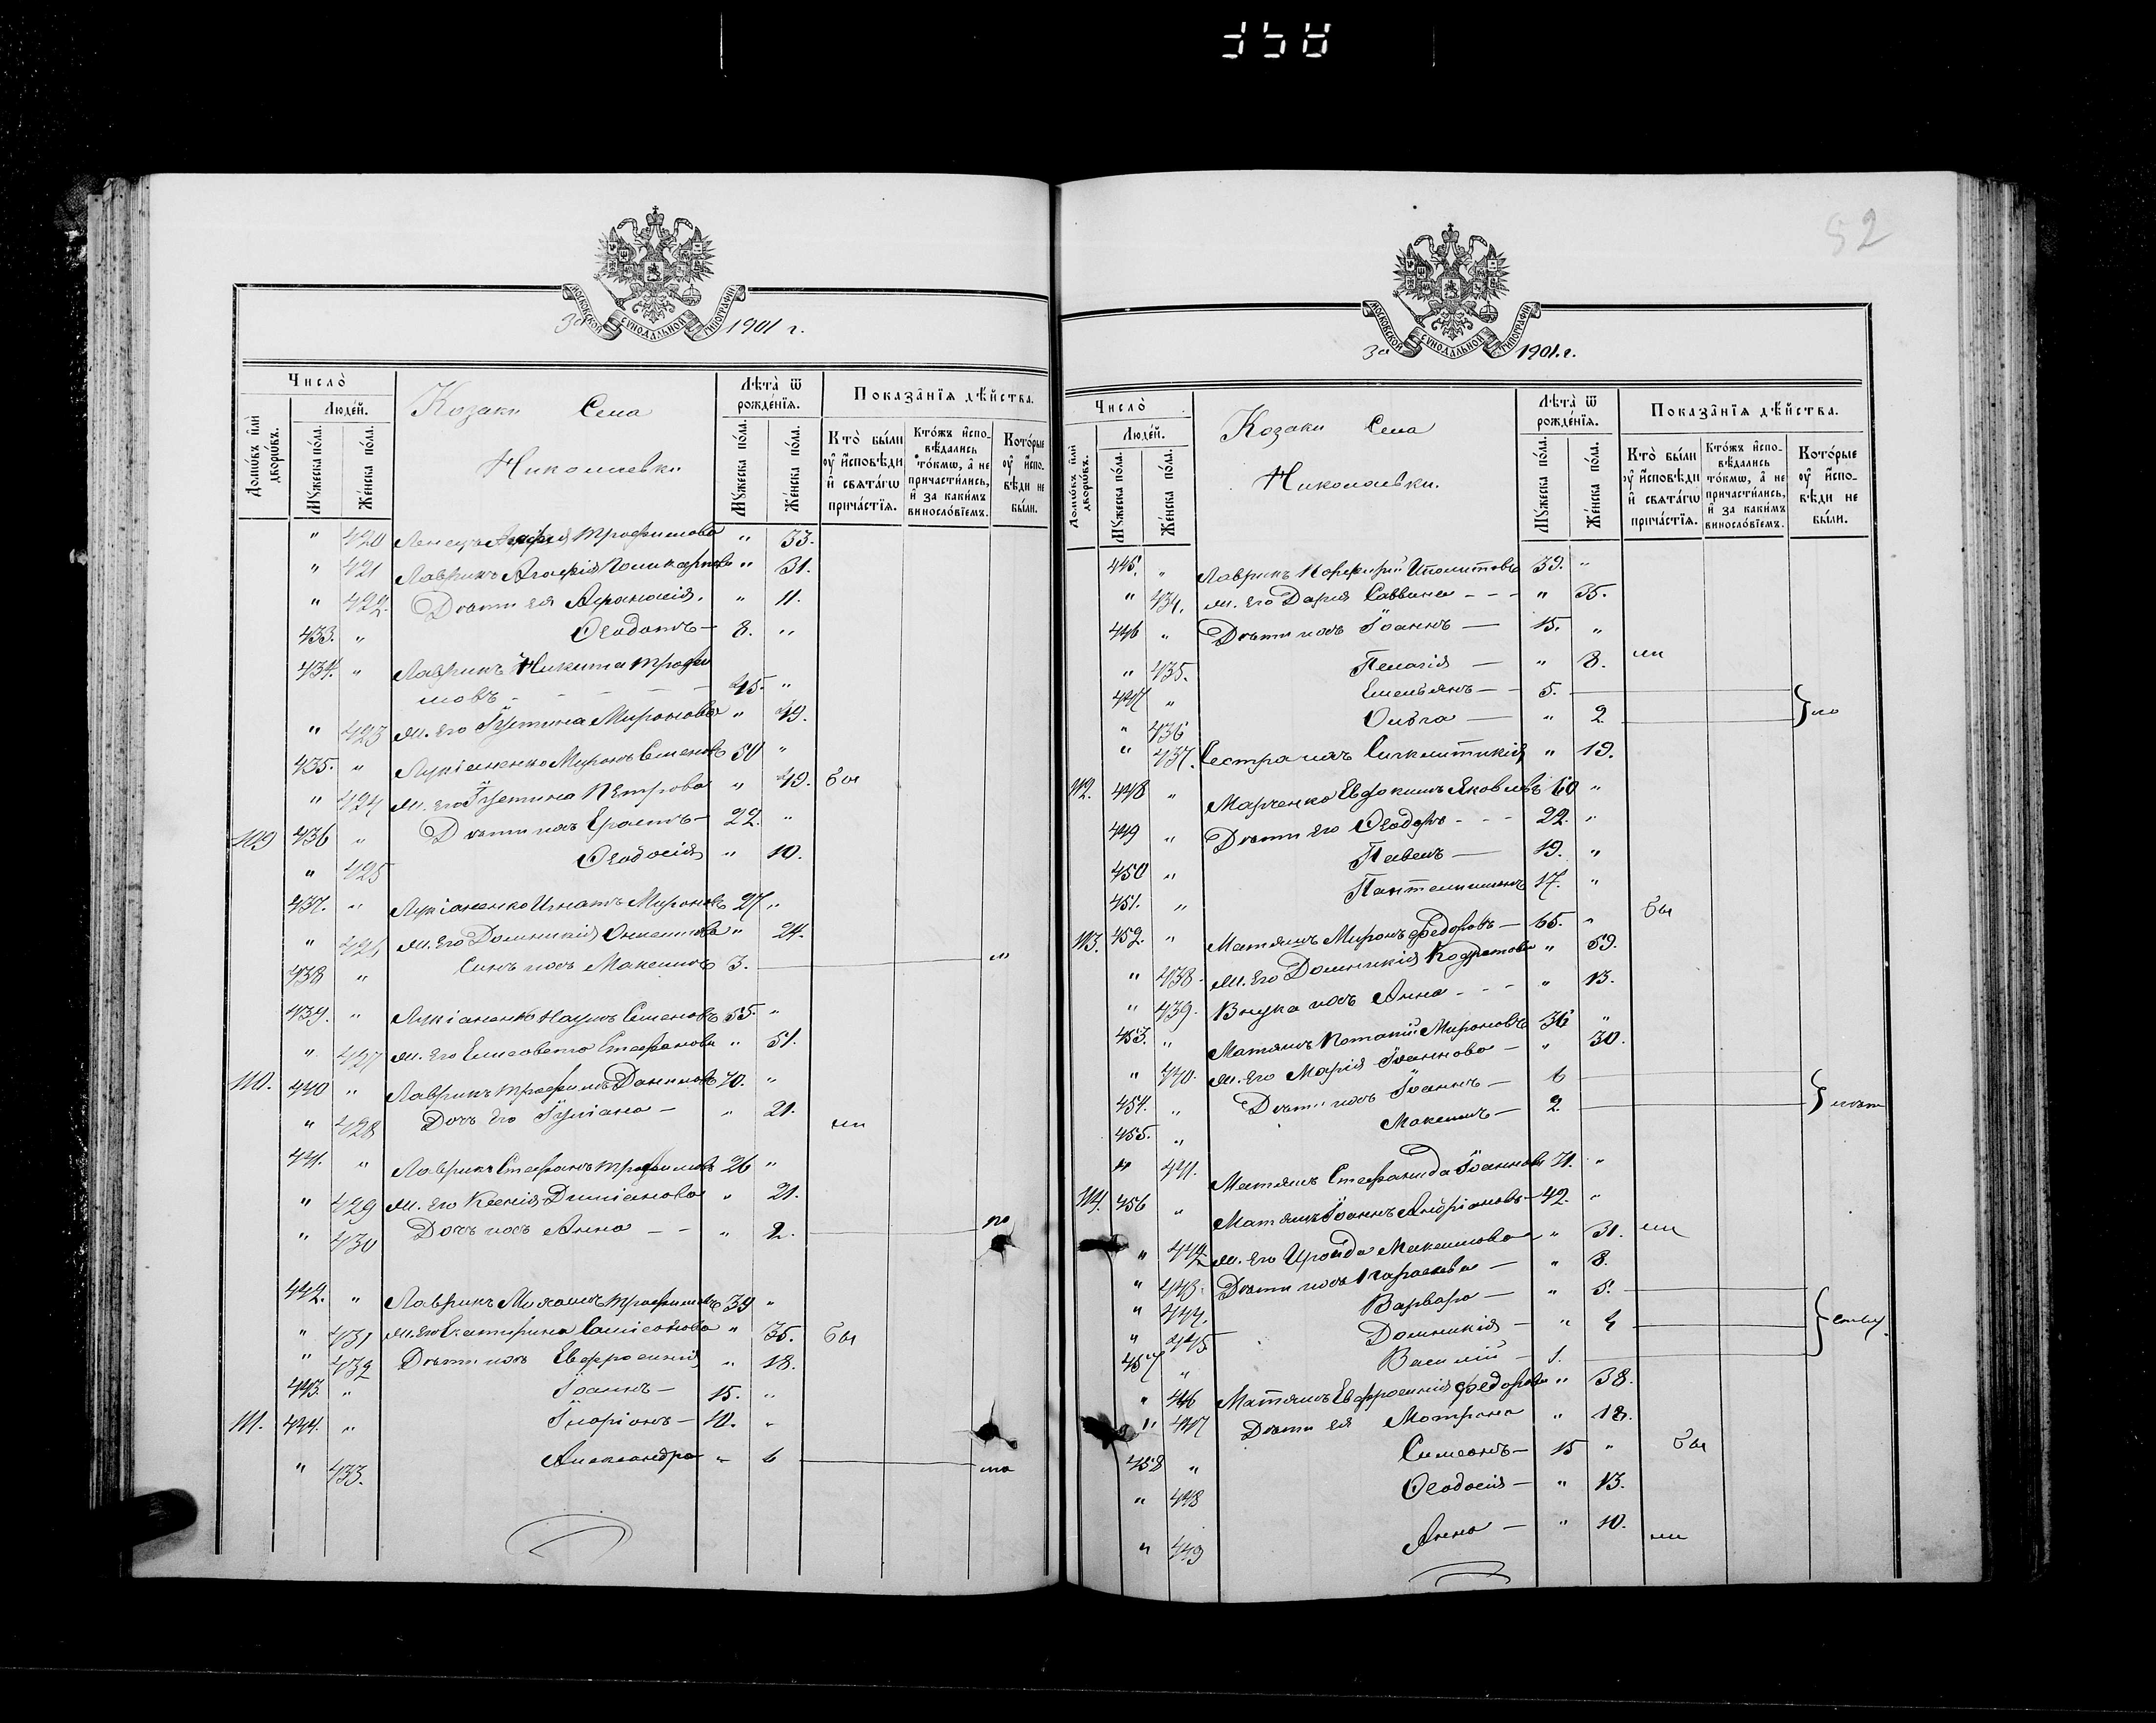 52
МОСКОВСКОЙ СУНОДАЛЬНОЙ ТИПОГРАФІИ
За 1901 г.
Число̀
Люде́й.
Домѡ́въ и҆лѝ дворѡ́въ.
Му́жеска по́ла.
Же́нска по́ла.
Козаки Села
Николаевки
Лѣ́та ѿ рожде́нїѧ.
Му́жеска по́ла.
Же́нска по́ла.
Показа̑нїѧ дѣ́йства.
Кто̀ бы́ли ᲂу҆ и҆́сповѣди и҆ свѧта́гѡ прича́стїѧ.
Кто́жъ и҆спо-
вѣ́дались
то́кмѡ, а҆ не
причасти́лись,
и҆ за каки́мъ
винослѡ́вїемъ.
Кото́рые ᲂу҆ и҆́спо-
вѣди не бы́ли.
" 420 Трофимова " 33.
" 421 Лаврикъ Агафія Поликарпова " 31.
" 422. Дѣти ея Афанасія. " 11.
433. " Ѳеодотъ — 8. "
434. " Лаврикъ Никита Трофи
мовъ - — — — 45. "
" 423 Ж. его Іустина Миронова " 49.
435. " Лукіаненко Миронъ Семеновъ 50 "
" 424 Ж. его Іустина Петрова " 49. бы
109 436 " Дѣти ихъ Ерастъ — 22. "
" 425 Ѳеодосія " 10.
437. " Лукіаненко Игнатъ Мироновъ 27 "
" 426 Ж. его Домникія " 24.
438 " Сынъ ихъ Максимъ 3.
439. " Лукіаненко Наумъ Семеновъ 55. "
" 427 Ж. его Елисавета Стефанова " 51.
110. 440 " Лаврикъ Трофимъ Даниловъ 70. "
" 428 Дочь его Іуліана — " 21. ли
441. " Лаврикъ Стефанъ Трофимовъ 26 "
" 429 Ж. его Ксенія Диміанова " 21.
" 430 Дочь ихъ Анна — — " 2.
442. " Лаврикъ Михаилъ Трофимовъ 39 "
" 431 Ж. его Екатерина " 35. бы
" 432 Дѣти ихъ Евфросинія " 18.
443. " Іоаннъ — 15. "
111. 444. " Іларіонъ — 10. "
" 433. Александра " 6
МОСКОВСКОЙ СУНОДАЛЬНОЙ ТИПОГРАФІИ
За 1901. г.
Число̀
Люде́й.
Домѡ́въ и҆лѝ дворѡ́въ.
Му́жеска по́ла.
Же́нска по́ла.
Козаки Села
Николаевки.
Лѣ́та ѿ рожде́нїѧ.
Му́жеска по́ла.
Же́нска по́ла.
Показа̑нїѧ дѣ́йства.
Кто̀ бы́ли ᲂу҆ и҆́сповѣди и҆ свѧта́гѡ прича́стїѧ.
Кто́жъ и҆спо-
вѣ́дались
то́кмѡ, а҆ не
причасти́лись,
и҆ за каки́мъ
винослѡ́вїемъ.
Кото́рые ᲂу҆ и҆́спо-
вѣди не бы́ли.
445. " Лаврикъ Порфирій Иполитовъ 39. "
" 434. Ж. его Дарія Саввина - - - " 35.
446 " Дѣти ихъ Іоаннъ — 15. "
" 435. Пелагія — " 8. ли
447 " Емельянъ — 5.
" 436 Ольга — " 2
" 437. Сестра ихъ " 19.
112. 448 " Марченко Евдокимъ Яковлевъ 60 "
449 " Дѣти его Ѳеодоръ - - - 22. "
450 " Павелъ — 19. "
451. " Пантелимонъ 17. "
113. 452. " Матяшъ Миронъ Федоровъ — 65. " бы
" 438. Ж. его Домникія Кодратова " 59.
" 439. Внука ихъ Анна - - - " 13.
453. " Матяшъ Потапій Мироновъ 36 "
" 440. Ж. его Марія Іоаннова — " 30.
454. " Дѣти ихъ Іоаннъ — 6
455. " Максимъ — 2
" 441. Матяшъ Стефанида Іоаннова 71. "
114. 456 " Матяшъ Іоаннъ Андріановъ — 42. "
" 442 Ж. его Ираида Максимова " 31. ли
" 443. Дѣти ихъ Параскева — " 8.
" 444. Варвара — " 5.
" 445 Домникія — " 4
457 " Василій — 1.
" 446 Матяшъ Евфросинія Федорова " 38.
" 447 Дѣти ея Мотрона " 18.
458 " Симеонъ — 15 " бы
" 448 Ѳеодосія — " 13.
" 449 Анна — " 10. ли